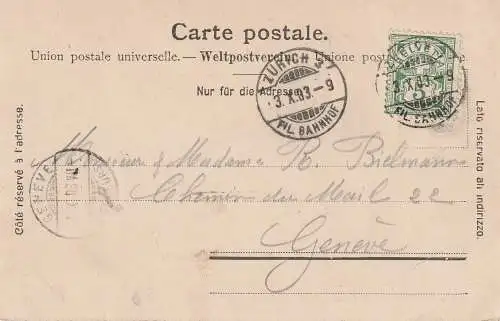 Carte postale.
Union postale universelle. — Weltpostverein — Unione postale
Nur für die Adresse
ZÜRICH
3.X.03.-9
FIL. BAHNHOF
3.X.03.-9
FIL. BAHNHOF
5
Côté réservé à l'adresse.
Lato riservato all indirizzo.
GENÈVE
Monsieur & Madame R. Bielmann
Chemin du Mail 22
Genève